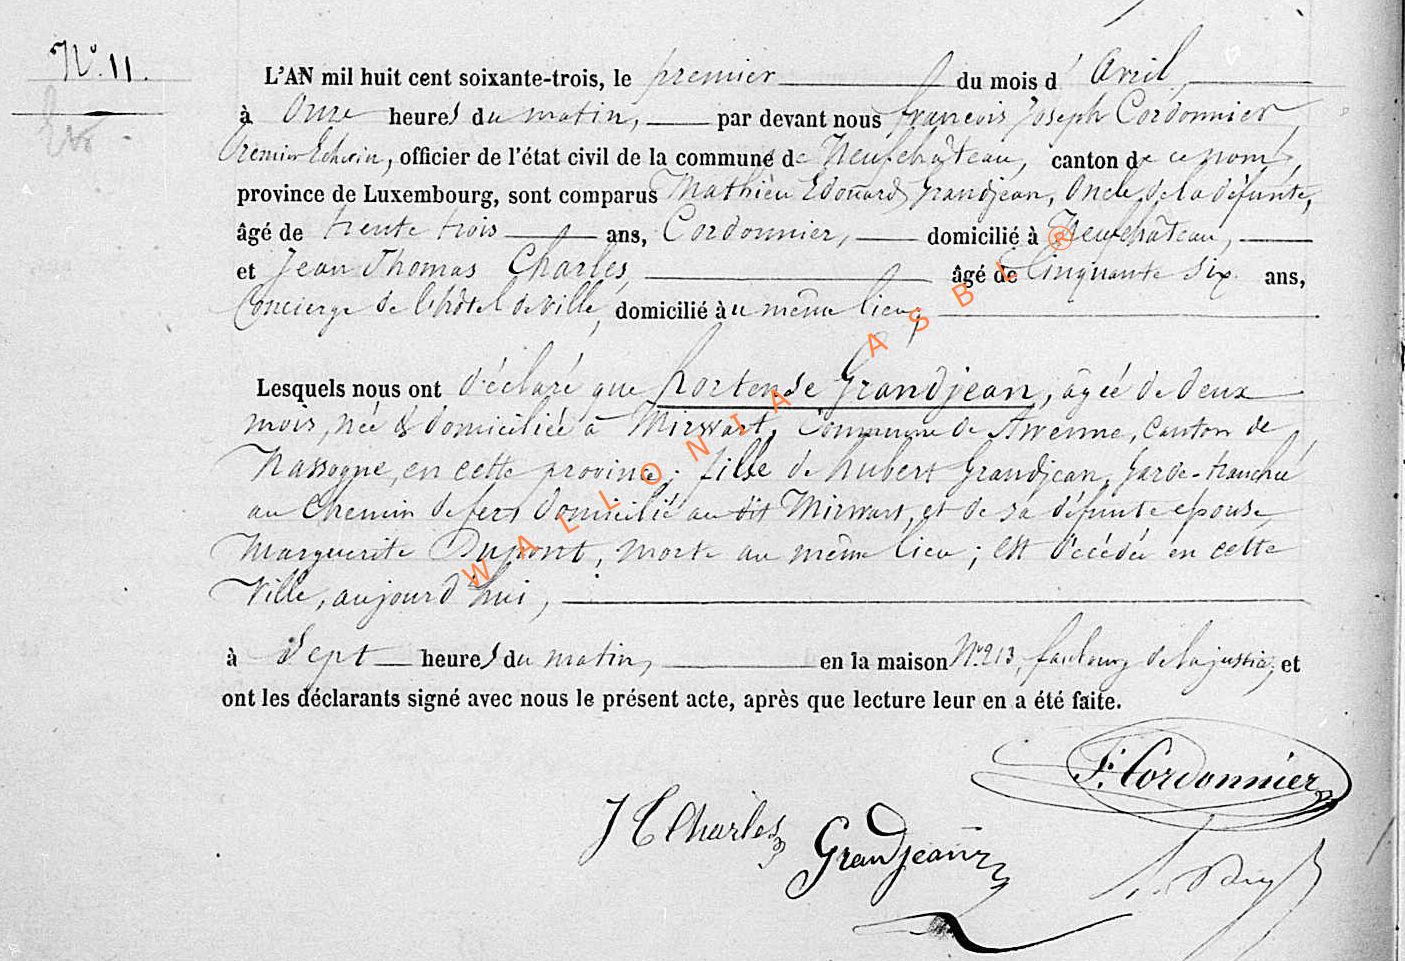 N° 11.
L'AN mil huit cent soixante-trois, le premier du mois d'Avril
à Onze heures du matin, par devant nous françois Joseph Cordonnier,
Premier Echevin, officier de l'état civil de la commune de Neufchâteau, canton de ce nom,
province de Luxembourg, sont comparus Mathieu Edouard Grandjean, Oncle de la défunte,
âgé de trente trois ans, Cordonnier, domicilié à Neufchâteau,
et Jean Thomas Charles, âgé de Cinquante six ans,
Concierge de l'hôtel de ville, domicilié au même lieu,
Lesquels nous ont déclaré que hortense Grandjean, âgée de deux
mois, née & domiciliée à Mirwart, Commune de Awenne, Canton de
Nassogne, en cette province; fille de hubert Grandjean, garde-tranchée
au Chemin de fer, domicilié au dit Mirwart, et de sa défunte épouse
Marguerite Dupont, morte au même lieu; est décédée en cette
Ville, aujourd'hui,
à Sept heures du matin, en la maison N° 213, faubourg de la justice, et
ont les déclarants signé avec nous le présent acte, après que lecture leur en a été faite.
F: Cordonnier
J T Charles
Grandjean
WALLONIA ASBL ®